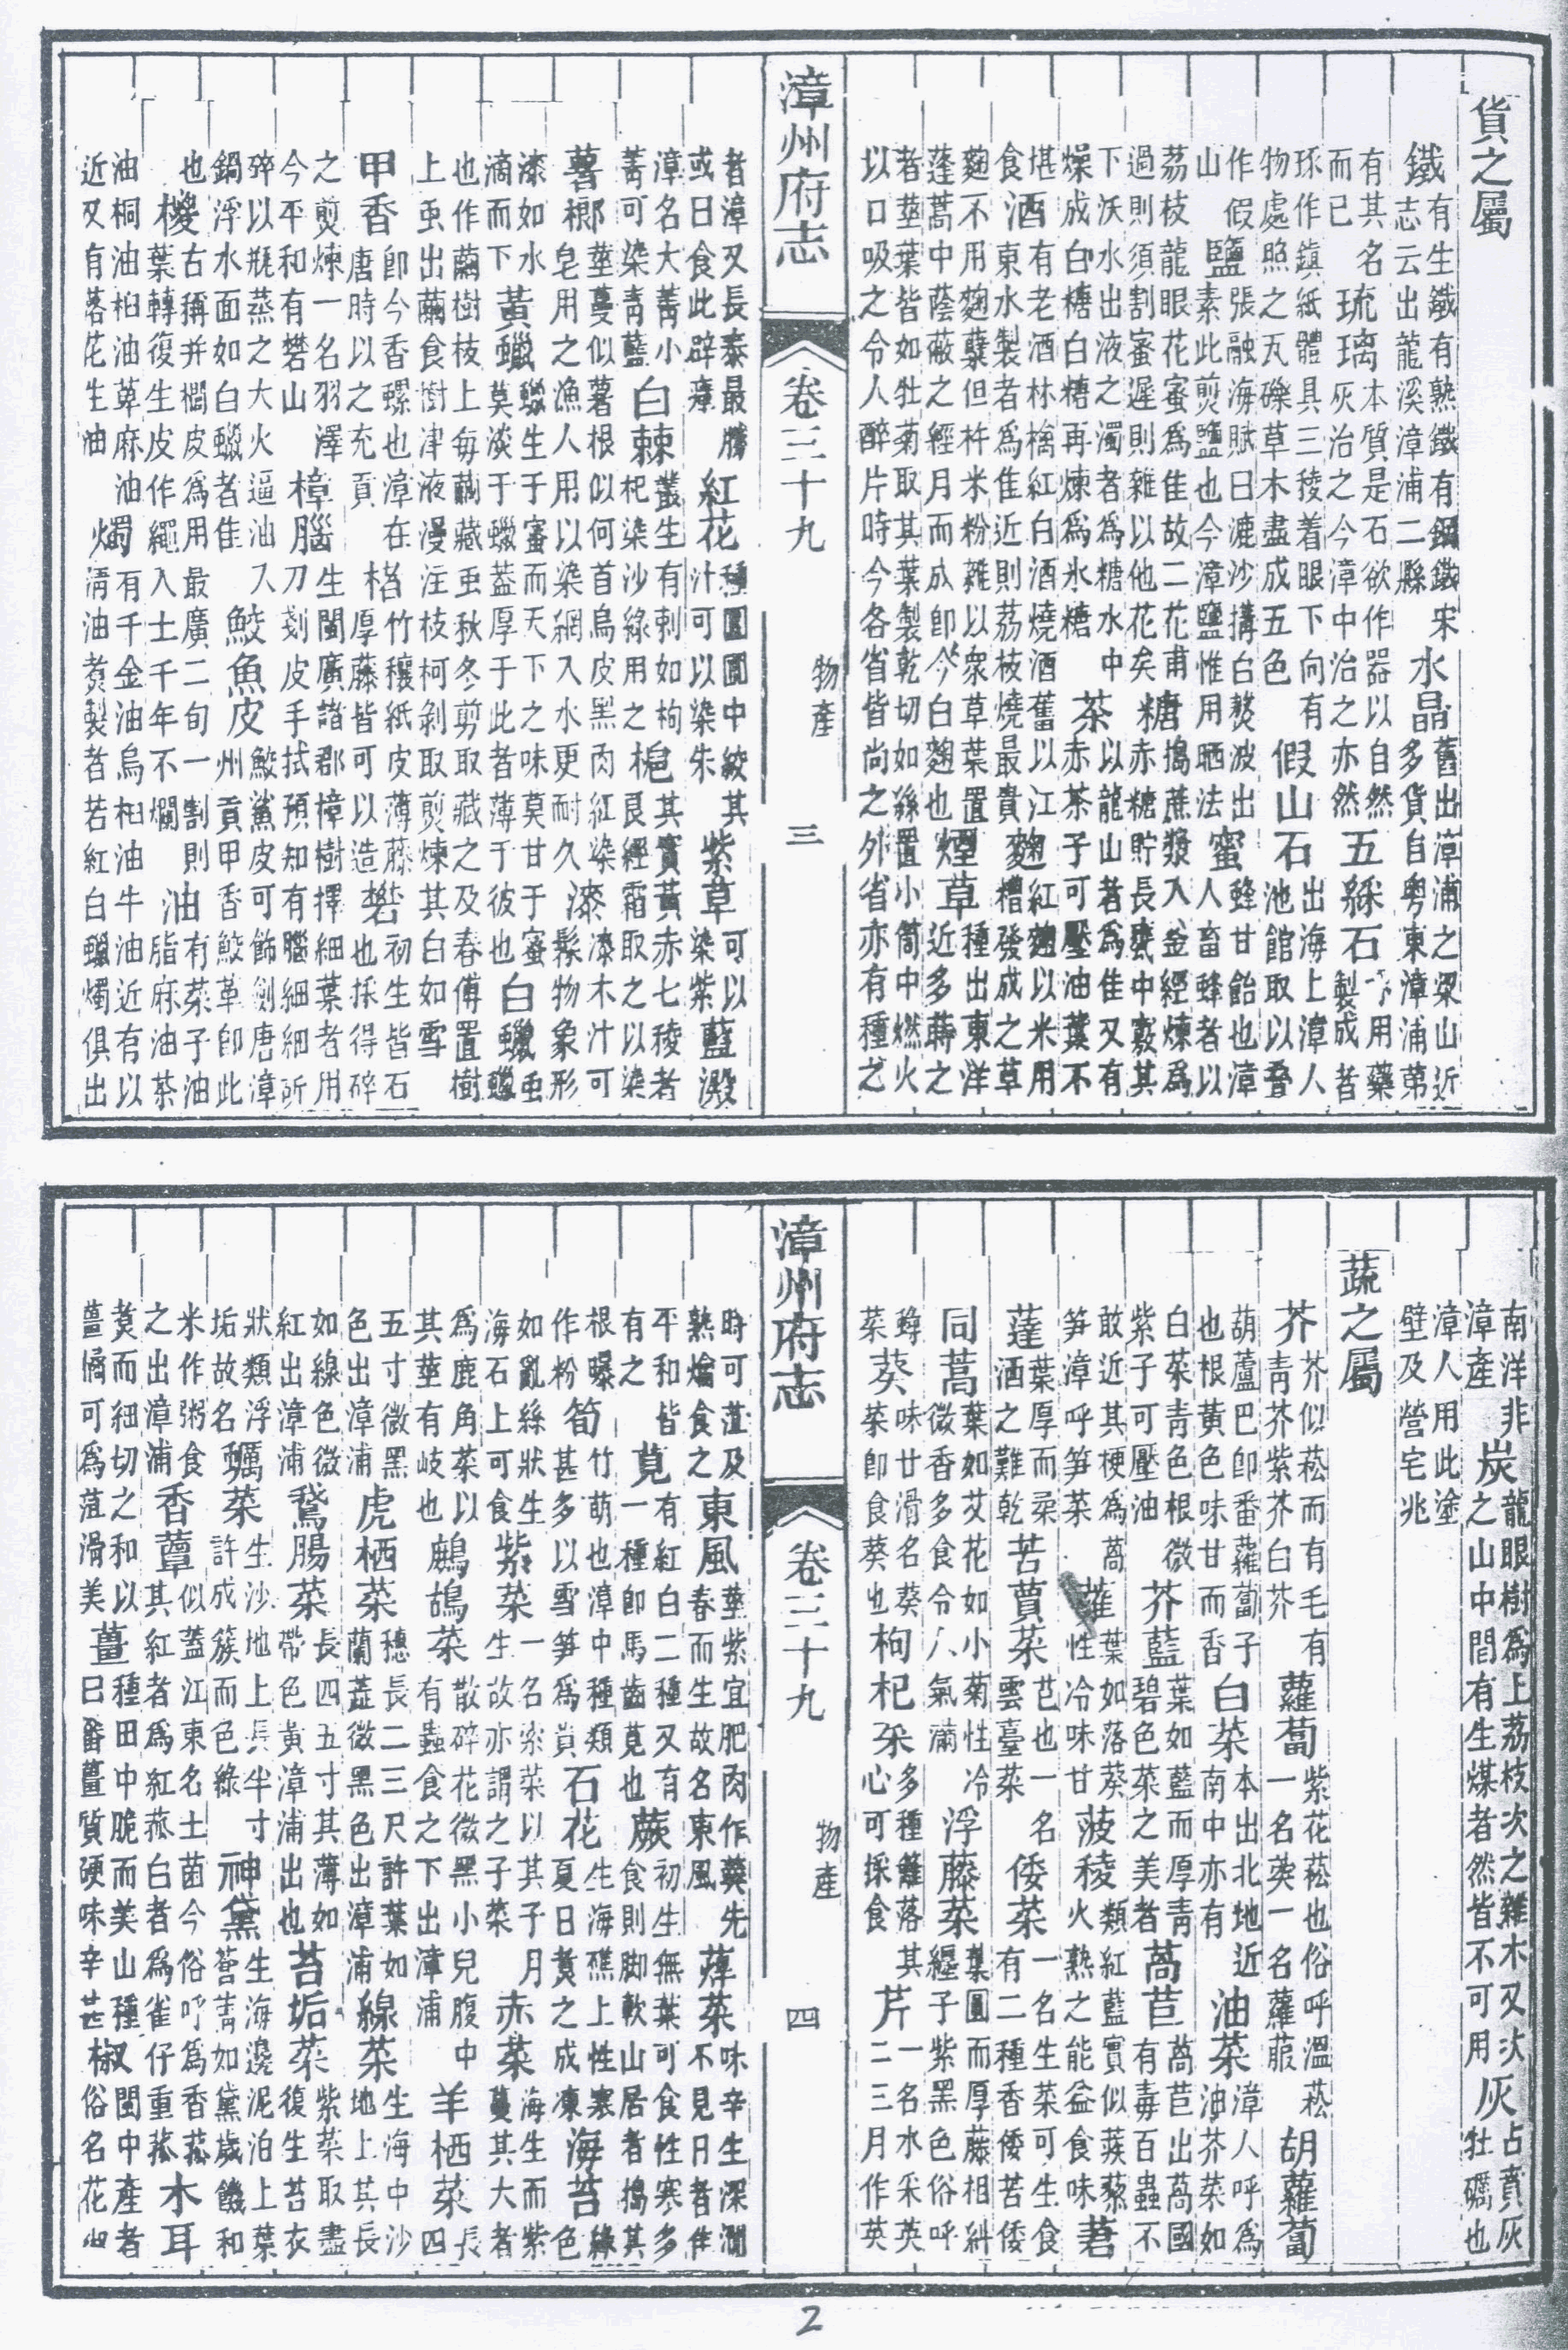 貨之屬
鐵
有生鐵有熟鐵有鋼鐵宋
志云出龍溪漳浦二縣
水晶
舊出漳浦之梁山近
多貨自粵東漳浦第
有其名
而已
琉璃
本質是石欲作器以自然
灰治之今漳中治之亦然
五綵石
用藥
製成者
琢作鎮紙體具三稜着眼下向有
物處照之瓦礫草木盡成五色
假山石
出海上漳人
池館取以疊
作假
山
鹽
張融海賦曰漉沙搆白熬波出
素此煎鹽也今漳鹽惟用晒法
蜜
蜂甘飴也漳
人畜蜂者以
荔枝龍眼花蜜爲佳故二花甫
過則須割蜜遲則雜以他花矣
糖
搗蔗漿入釜經煉爲
赤糖貯長甕中覈其
下沃水出液之濁者爲糖水中
燥成白糖白糖再煉爲氷糖
茶
以龍山者爲佳又有
赤茶子可壓油葉不
堪
食
酒
有老酒林檎紅白酒燒酒舊以江
東水製者爲佳近則荔枝燒最貴
麯
紅麯以米用
槽發成之草
麯不用麯蘖但杵米粉雜以衆草葉置
蓬蒿中蔭蔽之經月而成即今白麯也
煙草
種出東洋
近多蒔之
者莖葉皆如牡菊取其葉製乾切如絲置小筒中燃火
以口吸之令人醉片時今各省皆尚之外省亦有種之
漳州府志
卷三十九
物產
三
者漳又長泰最勝
或曰食此辟瘴
紅花
種園圃中絞其
汁可以染朱
紫草
可以
染紫
藍澱
漳名大菁小
菁可染青藍
白棘
叢生有刺如枸
杞染沙綠用之
梔
其實黃赤七稜者
良經霜取之以染
薯榔
莖蔓似薯根似何首烏皮黑肉紅染汁可
皂用之漁人用以染網入水更耐久
漆
漆木汁可
髹物象形
漆如水
滴而下
黃蠟
蠟生于蜜而天下之味莫甘于蜜
莫淡于蠟蓋厚于此者薄于彼也
白蠟
蠟虫
也作繭樹枝上每繭藏虫秋冬剪取藏之及春傅置樹
上虫出繭食樹津液漫注枝柯剝取煎煉其白如雪
甲香
即今香螺也漳在
唐時以之充貢
楮
竹穰紙皮薄藤
厚藤皆可以造
礬
初生皆石
也採得碎
之煎煉一名羽澤
今平和有礬山
樟腦
生閩廣諸郡樟樹擇細葉者用
刀剗皮手拭預知有腦細細斫
碎以瓶蒸之大火逼油入
鍋浮水面如白蠟者佳
鮫魚皮
鮫鯊皮可飾劍唐漳
州貢甲香鮫革即此
也
椶
古稱并櫚皮爲用最廣二旬一割則
葉轉復生皮作繩入土千年不爛
油
有菜子油
脂麻油茶
油桐油桕油萆麻油
近又有落花生油
燭
有千金油烏桕油牛油近有以
清油煑製者若紅白蠟燭俱出
南洋非
漳產
炭
龍眼樹爲上荔枝次之雜木又次
之山中間有生煤者然皆不可用
灰
占賁灰
牡礪也
漳人用此塗
壁及營宅兆
蔬之屬
芥
芥似菘而有毛有
青芥紫芥白芥
蘿蔔
紫花菘也俗呼溫菘
一名葖一名蘿菔
胡蘿蔔
葫蘆巴即番蘿蔔子
也根黃色味甘而香
白菜
本出北地近
南中亦有
油菜
漳人呼爲
油芥菜如
白菜青色根微
紫子可壓油
芥藍
葉如藍而厚青
碧色菜之美者
萵苣
萵苣出萵國
有毒百蟲不
敢近其梗爲萵
笋漳呼笋菜
葉如落葵
性冷味甘
菠稜
類紅藍實似蒺藜
火熟之能益食味
莙
薘
葉厚而柔
酒之難乾
苦蕒菜
苣也一名
雲臺菜
倭菜
一名生菜可生食
有二種香倭苦倭
同蒿
葉如艾花如小菊性冷
微香多食令人氣滿
浮藤菜
葉圓而厚藤相糾
纏子紫黑色俗呼
蓴
菜
葵
味甘滑名葵
菜即食葵也
枸杞
多種籬落其
采心可採食
芹
一名水采英
二三月作英
漳州府志
卷三十九
物產
四
時可葅及
熟爚食之
東風
莖紫宜肥肉作羹先
春而生故名東風
蔊菜
味辛生深澗
不見日者佳
平和皆
有之
莧
有紅白二種又有
一種即馬齒莧也
蕨
初生無葉可食性寒多
食則脚軟山居者搗其
根曝
作粉
筍
竹萌也漳中種類
甚多以雪笋爲貴
石花
生海礁上性寒
夏日煑之成凍
海苔
綠
色
如亂絲狀生
海石上可食
紫菜
一名索菜以其子月
生故亦謂之子菜
赤菜
海生而紫
蔓其大者
爲鹿角菜以
其莖有岐也
鷓鴣菜
散碎花微黑小兒腹中
有蟲食之下出漳浦
羊栖菜
長
四
五寸微黑
色出漳浦
虎栖菜
穗長二三尺許葉如
蘭蓋微黑色出漳浦
線菜
生海中沙
地上其長
如線色微
紅出漳浦
鵞腸菜
長四五寸其薄如
帶色黃漳浦出也
苔垢菜
紫菜取盡
復生苔衣
狀類浮
垢故名
蠣菜
生沙地上長半寸
許成簇而色綠
神黛
生海邊泥泊上葉
薈青如黛歲饑和
米作粥食
之出漳浦
香蕈
似蓋江東名土菌今俗呼爲香菰
其紅者爲紅菰白者爲雀仔重菰
木耳
煑而細切之和以
薑橘可爲葅滑美
薑
種田中脆而美山種
曰番薑質硬味辛甚
椒
閩中產者
俗名花